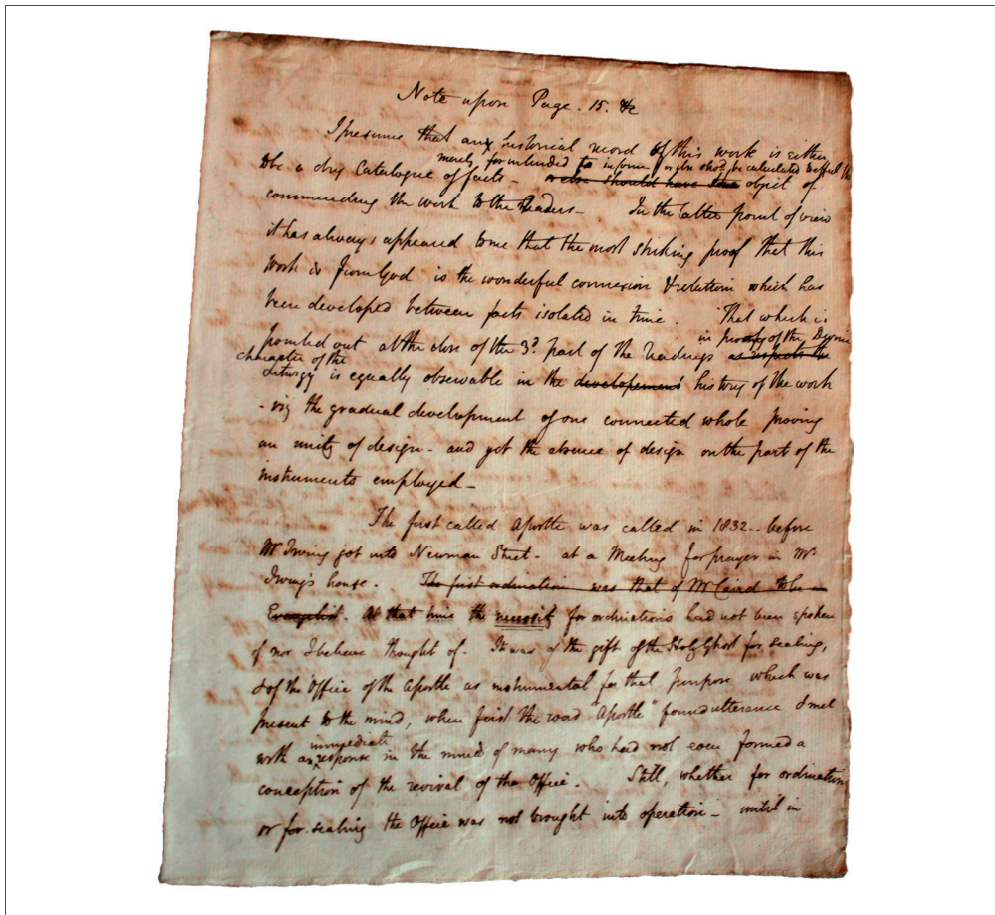 Note upon Page. 15. &c
I presume that any historical record of this work is either
merely for intended to inform or also shod. be calculated to effect the
to be a dry Catalogue of facts - or else should have the object of
commending the work to the Readers - In the latter point of view
it has always appeared to me that the most striking proof that this
work is from God is the wonderful connexion & relation which has
been developed between facts isolated in time. That which is
in proofs of the Divine
pointed out at the close of the 3d part of the Readings as respects the
character of the
Liturgy is equally observable in the developement history of the work
- viz the gradual development of one connected whole proving
an unity of design - and yet the absence of design on the part of the
instruments employed -
The first called Apostle was called in 1832 - before
Mr Irving got into Newman Street - at a Meeting for prayer in Mr
Irving's house. The first ordination was that of Mr Caird to be an
Evangelist. At that time the necessity for ordinations had not been spoken
of nor I believe thought of. It was of the gift of the Holy Ghost for sealing,
& of the Office of the Apostle as instrumental for that purpose which was
present to the mind, when first the word "Apostle" found utterance & met
immediate
with an response in the mind of many who had not even formed a
conception of the revival of the Office. Still, whether for ordination
or for sealing the Office was not brought into operation - until in